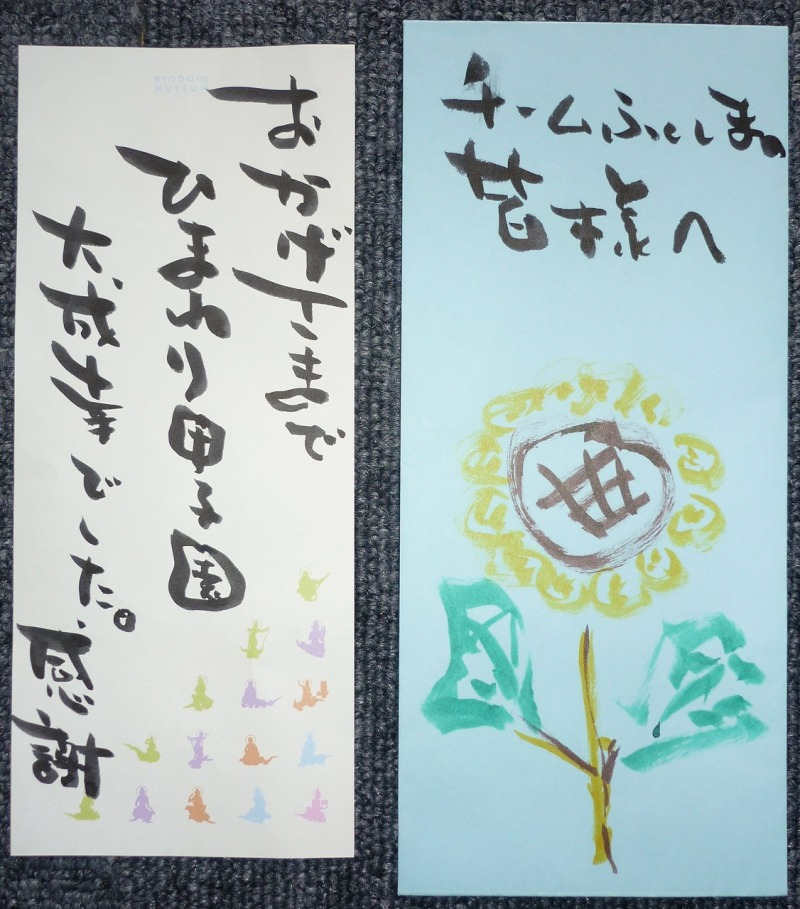 チームふくしまの
皆様へ
BYODOIN
MUSEUM
おかげさまで
ひまわり甲子園
大成幸でした。
感謝